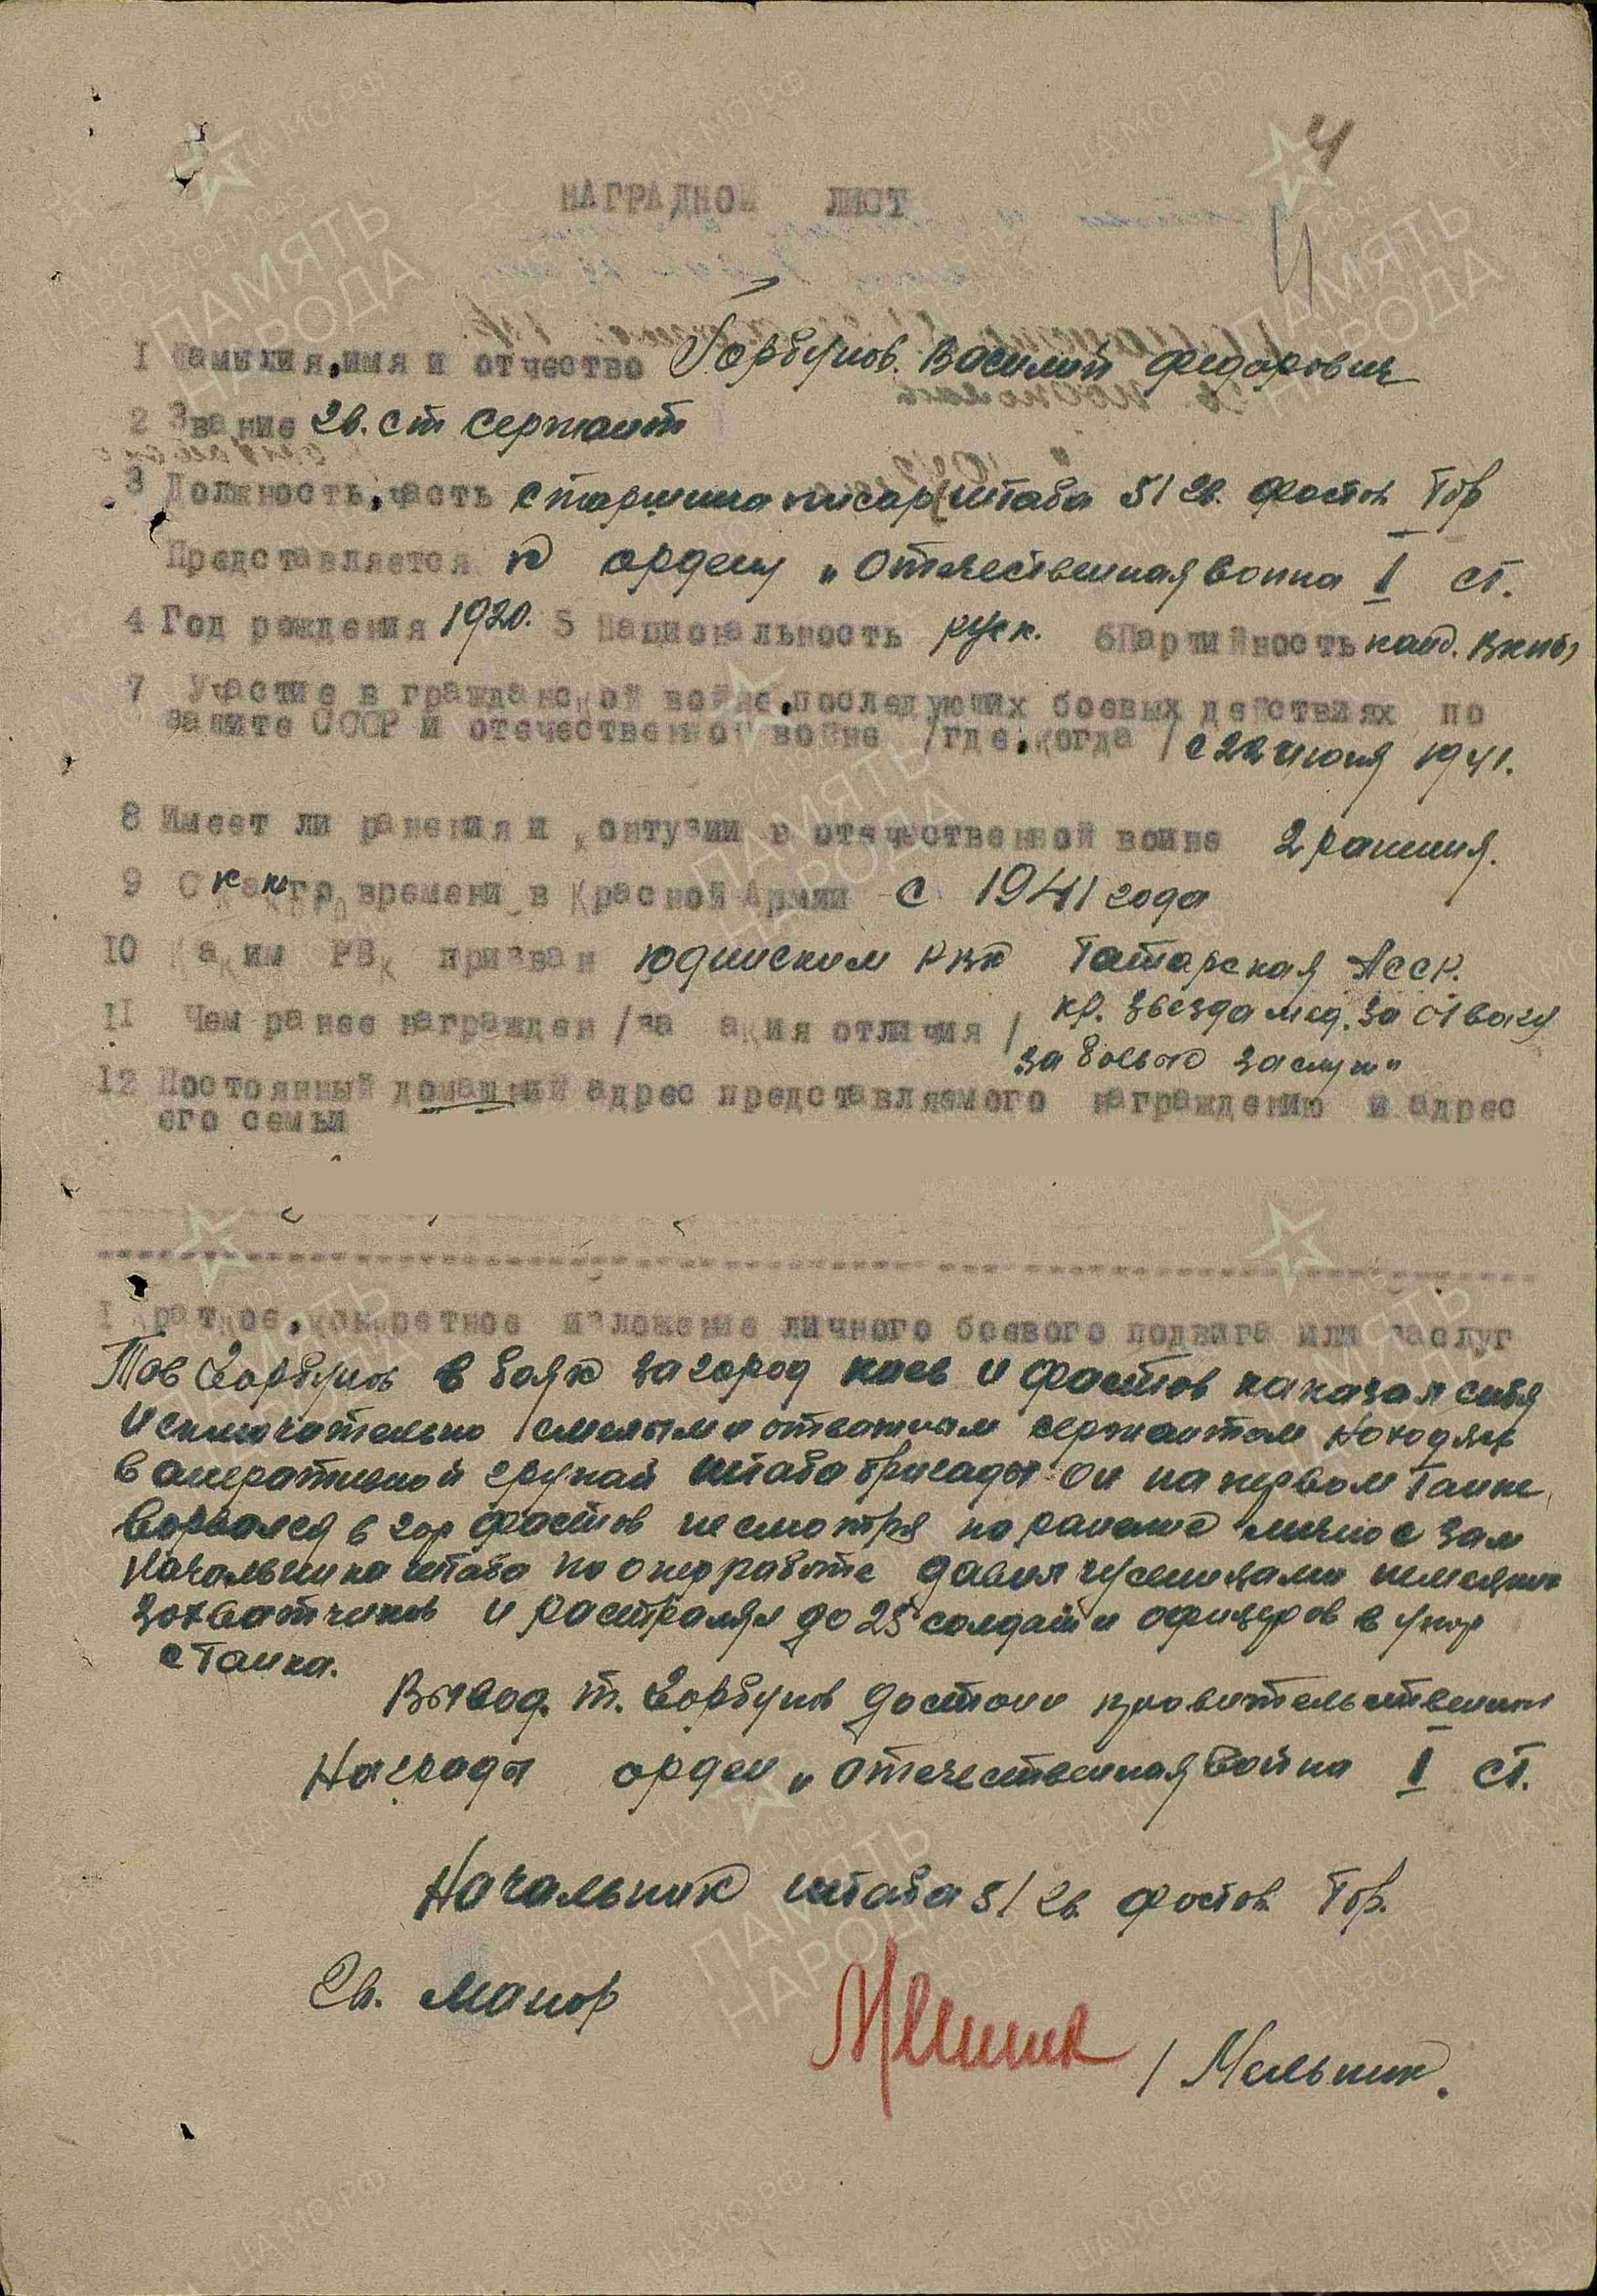 4
НАГРАДНОЙ ЛИСТ
4
1 Фамилия, имя и отчество Горбунов Василий Федорович
2 Звание гв. ст сержант
3 Должность, часть старшина писарь штаба 51 гв. фастов Тбр
Представляется к ордену „Отечественная воина I ст.
4 Год рождения 1920. 5 Национальность руск. 6 Партийность канд. ВКП(б)
7 Участие в гражданской войне, последующих боевых действиях по
защите СССР и отечественной войне /где, когда/ с 22 июня 1941.
8 Имеет ли ранения и контузии в отечественной воине 2 ранения.
9 С какого времени в Красной Армии с 1941 года
10 Каким РВК призван Юдинским РВК Татарская АССР.
11 Чем ранее награжден /за какия отличия/ кр. звезда мед. за отвагу
за боевые заслуги
12 Постоянный домашний адрес представляемого награждению и адрес
его семьи
I Краткое, конкретное изложение личного боевого подвига или заслуг
Тов Горбунов в боях за город Киев и Фастов показал себя
исключительно смелым и отважным сержантом находяс
в оперативной групай штаба бригады он на первом танке
ворвался в гор Фастов несмотря на ранение лично с зам
начальника штаба по опер работе давил гусеницами немецких
захватчиков и растрелял до 25 солдат и офицеров в упор
с танка.
Вывод. т. Горбунов достоин правительственной
Награды орден „Отечественная война I ст.
Начальник штаба 51 гв фастов Тбр.
Гв. майор
/ Мельник.
ПАМЯТЬ НАРОДА
ЦАМО.РФ